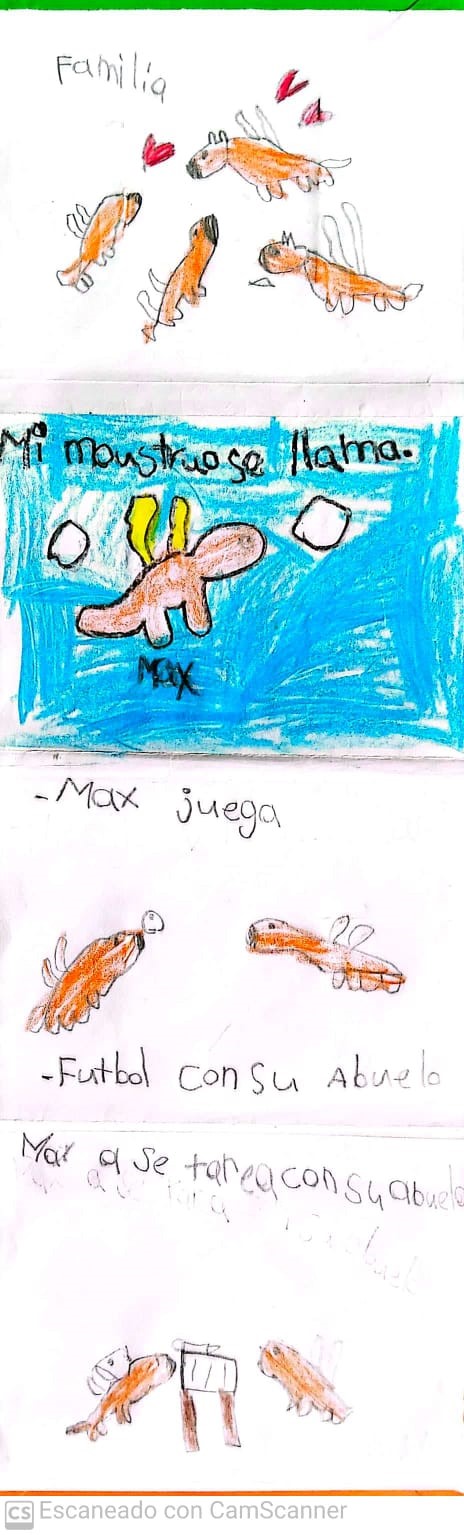 Familia
Mi moustruo se llama.
Max
-Max juega
-Futbol con su Abuelo
Max a se tarea con su abuelo
CS Escaneado con CamScanner